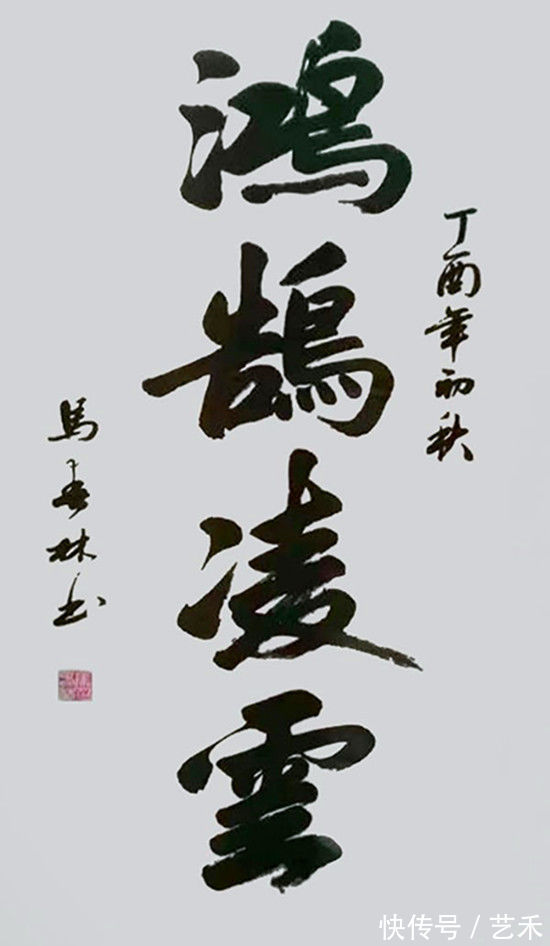 鴻鵠凌雲
丁酉年初秋
馬春林书
快传号 / 艺禾